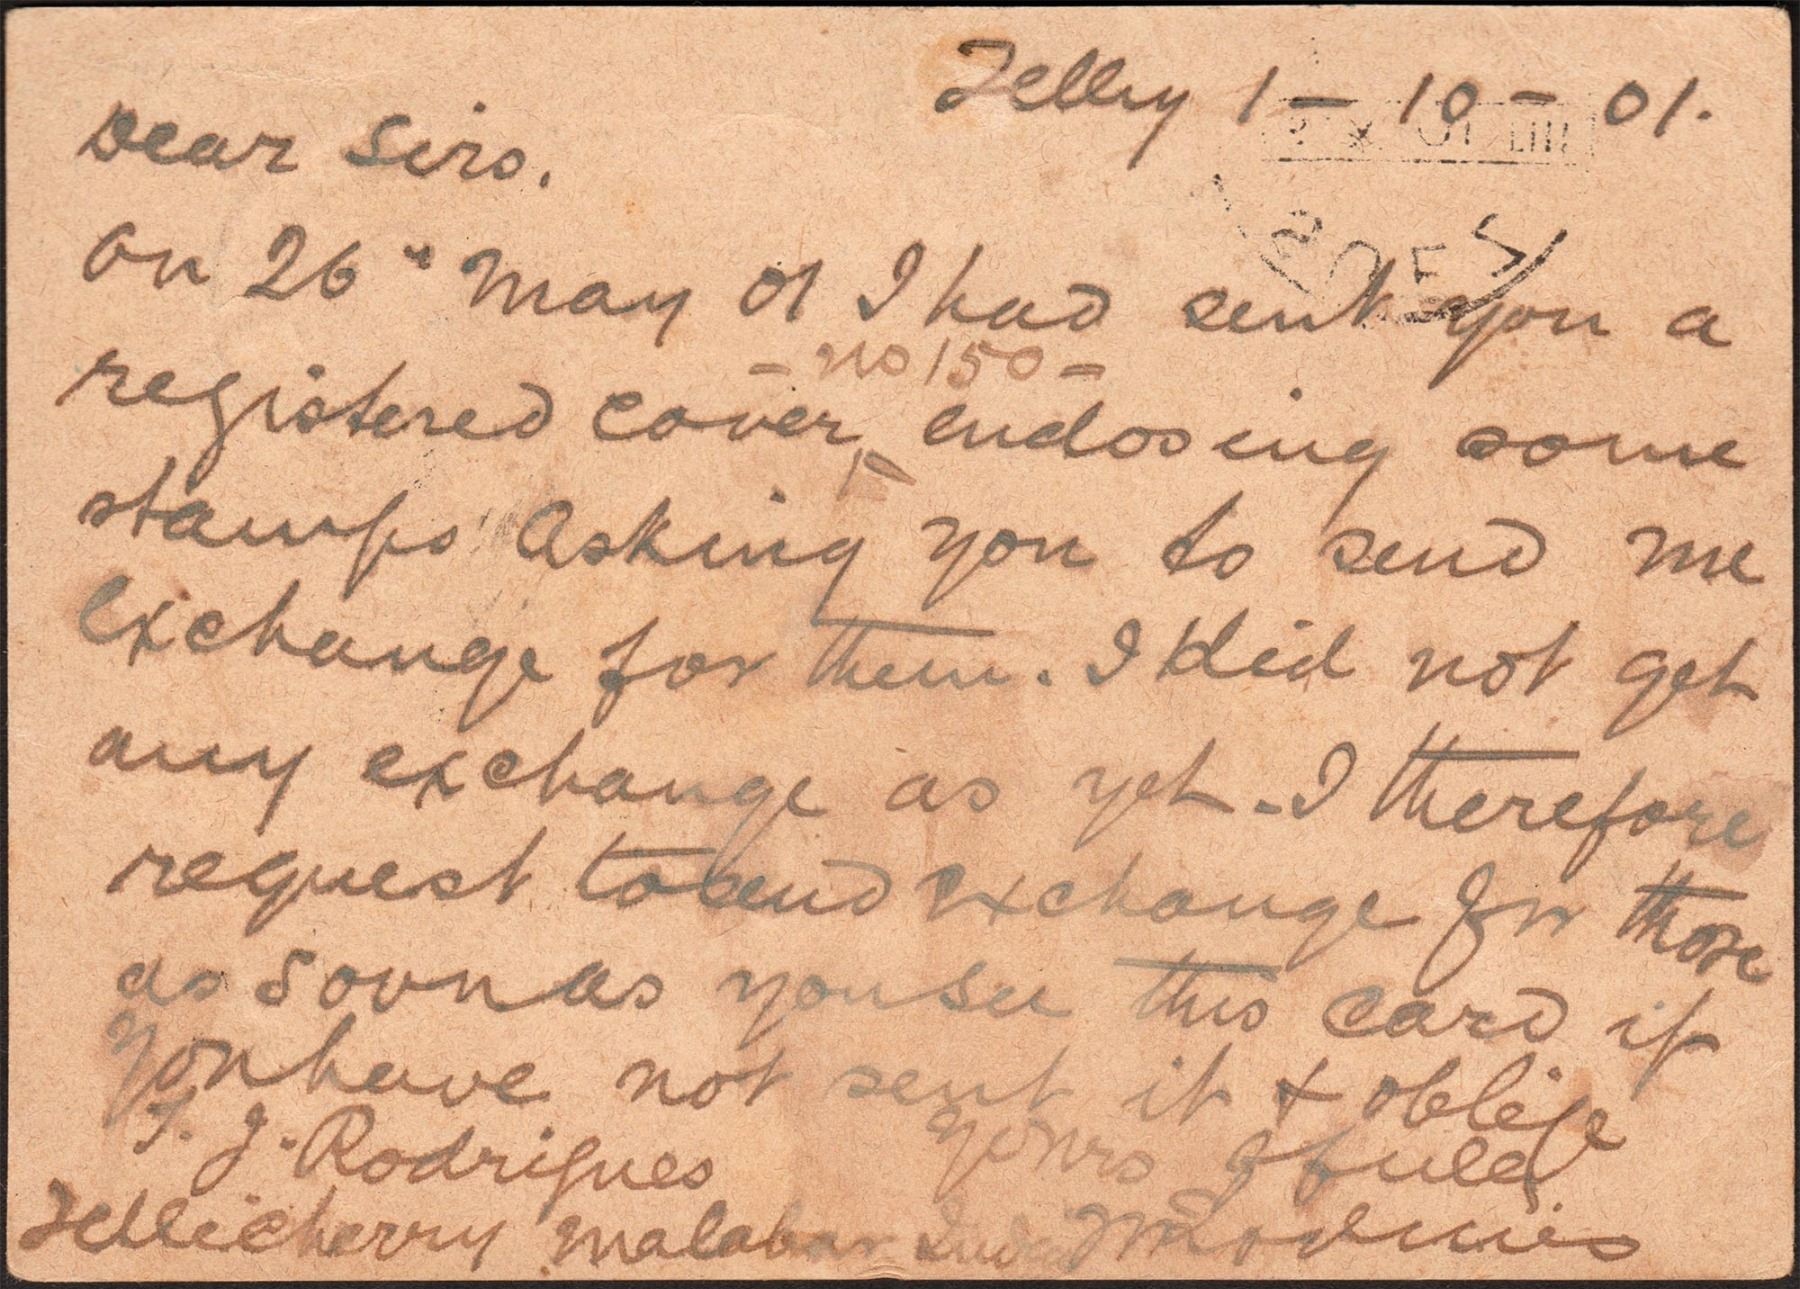 Telly 1 - 10 - 01.
Dear Sirs.
On 26th May 01 I had sent you a
- no 150 -
registered cover enclosing some
stamps asking you to send me
exchange for them. I did not get
any exchange as yet - I therefore
request to send exchange for those
as soon as you see this card if
you have not sent it + oblige
Yours
T. J. Rodrigues
Tellicherry Malabar India